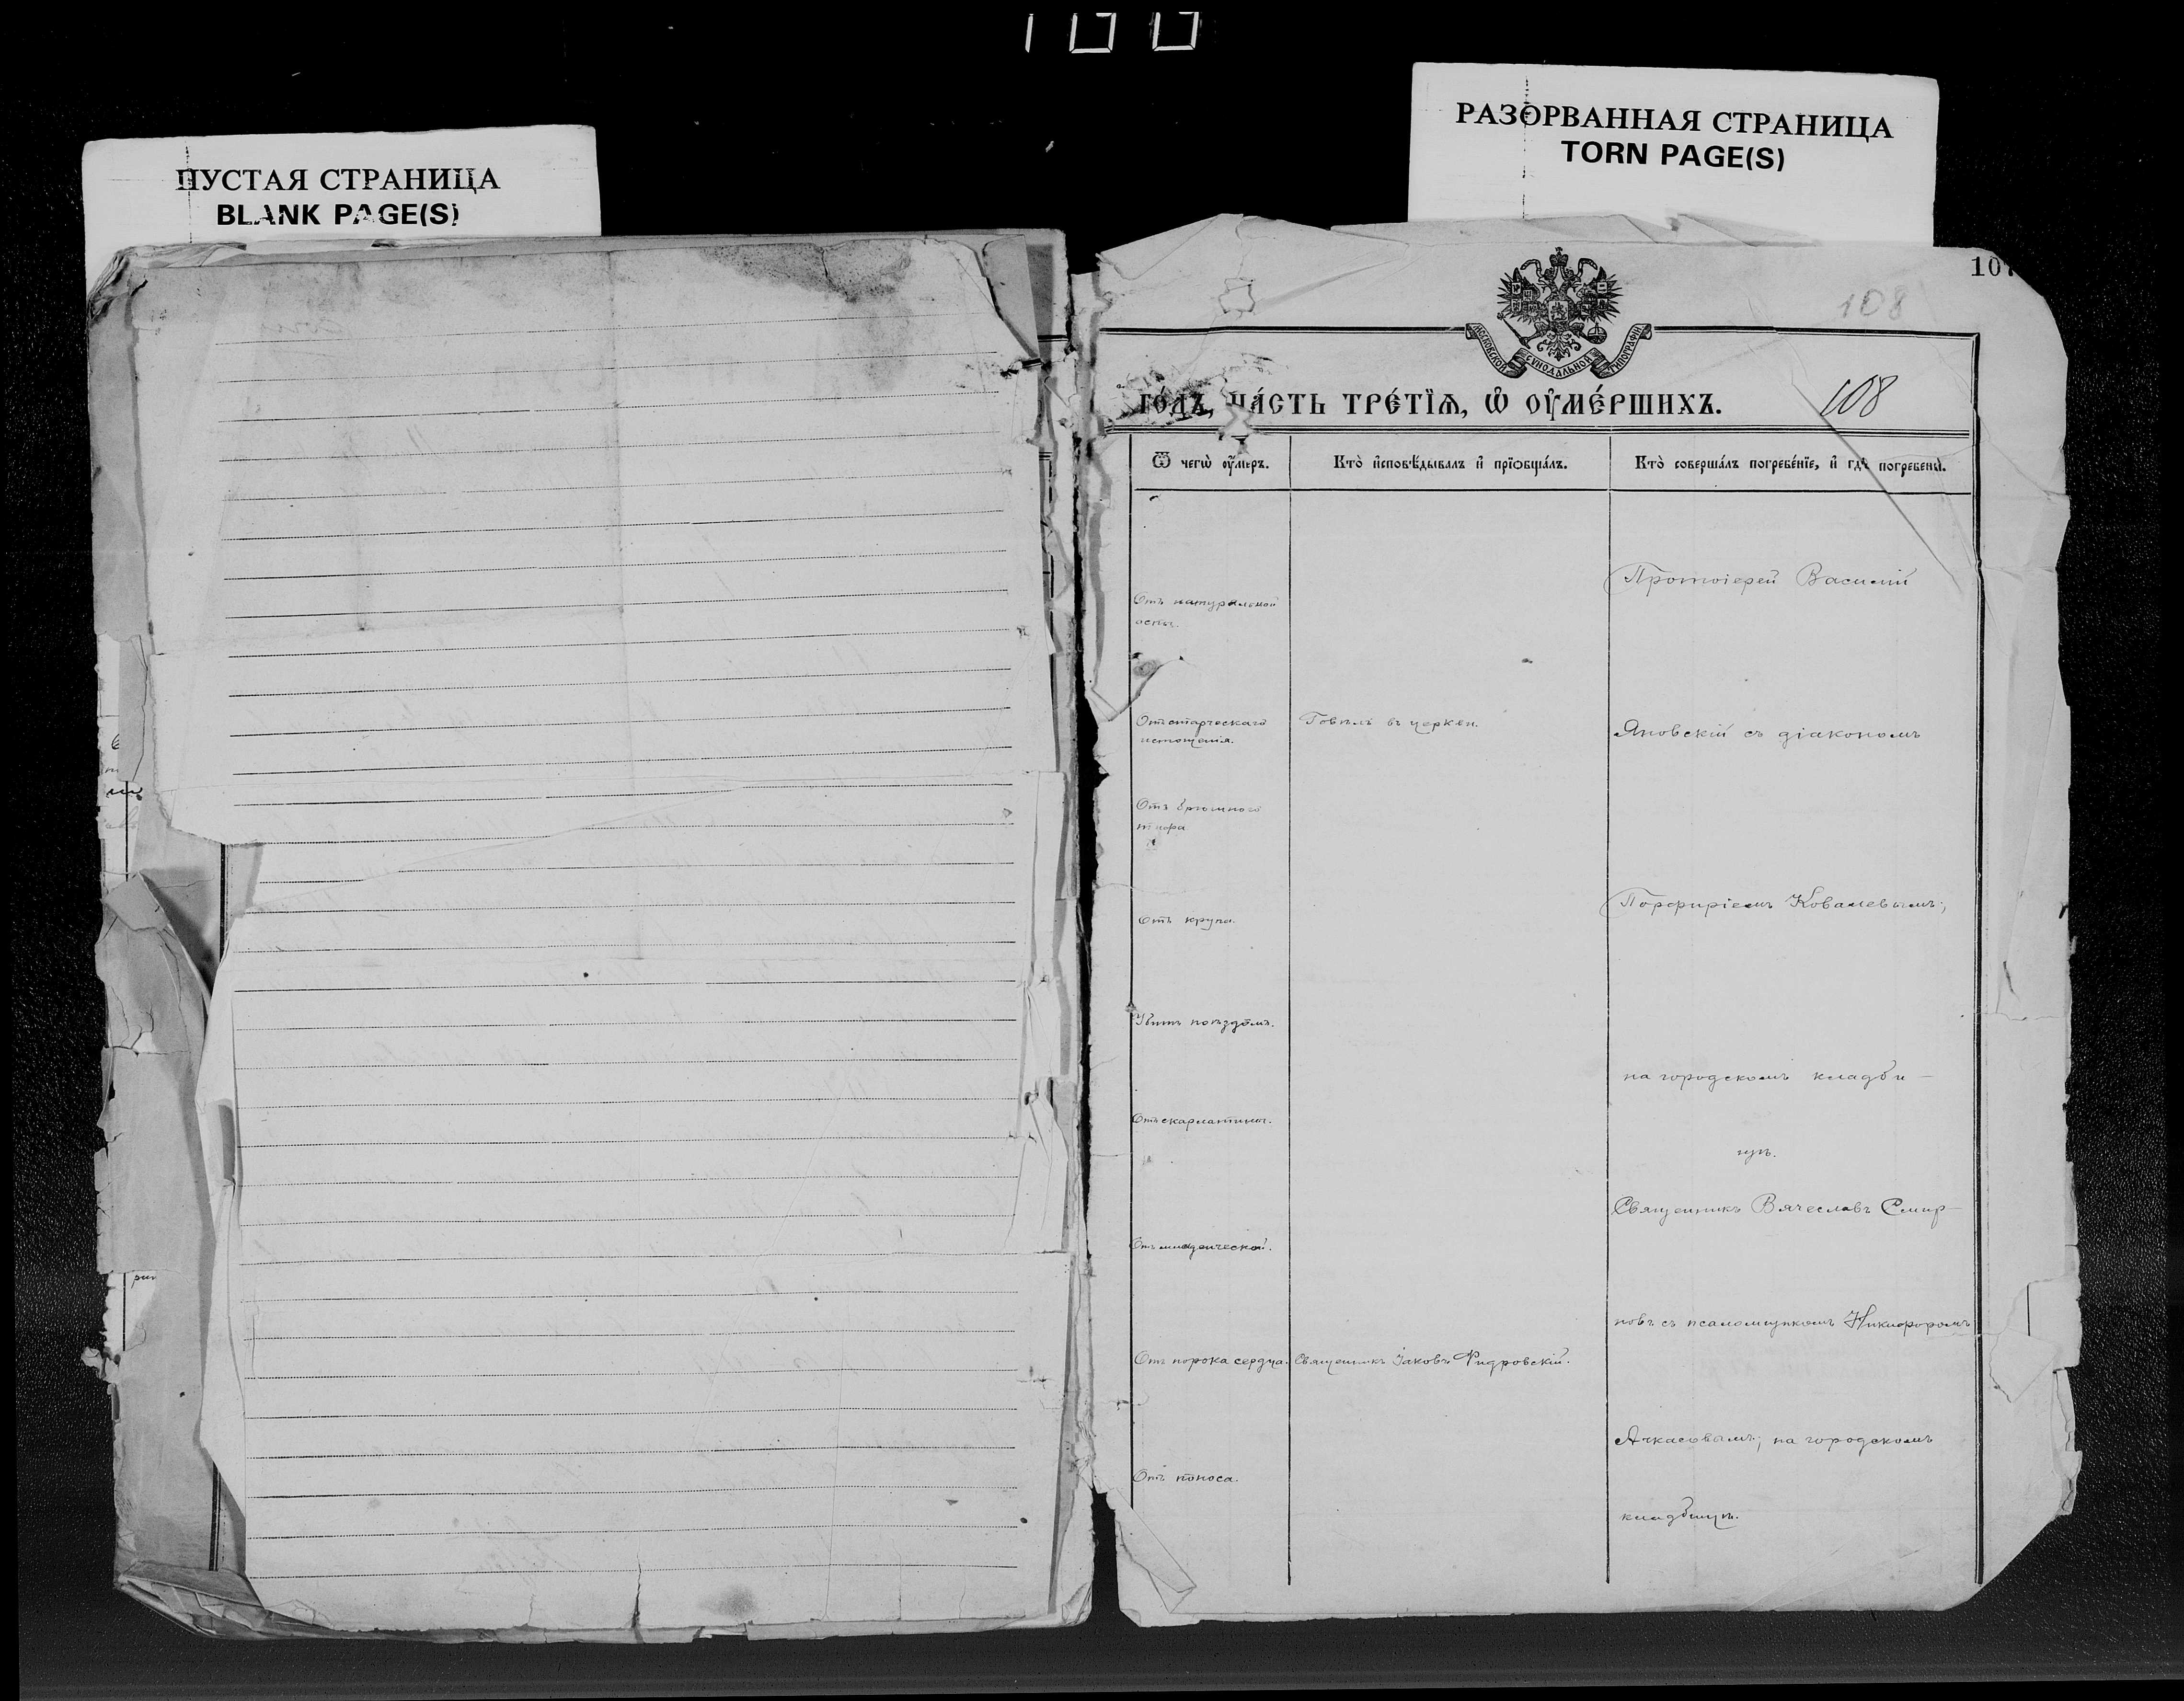 ПУСТАЯ СТРАНИЦА
BLANK PAGE(S)
РАЗОРВАННАЯ СТРАНИЦА
TORN PAGE(S)
107
108
МОСКОВСКОЙ СѴНОДАЛЬНОЙ ТИПОГРАФІИ
108
го́дъ, ча́сть тре́тїѧ, ѡ҆ ᲂу҆ме́ршихъ.
Ѿ чегѡ̀ ᲂу҆́меръ.
Кто̀ и҆сповѣ́дывалъ и҆ прїѡбща́лъ.
Кто̀ соверша́лъ погребе́нїе, и҆ гдѣ̀ погребены̀.
Протоіерей Василій
Отъ натуральной
оспы.
Отъ старческаго
истощенія.
Говѣлъ въ церкви.
Яновскій съ діакономъ
Отъ брюшного
тифа
Порфиріемъ Ковалевымъ;
Отъ крупа.
Убитъ поѣздомъ.
на городскомъ кладби-
Отъ скарлатины.
щѣ.
Священникъ Вячеславъ Смир-
Отъ младенческой.
новъ съ псаломщикомъ Никифоромъ
Отъ порока сердца.
Священникъ Іаковъ Фидровскій.
Ачкасовымъ; на городскомъ
Отъ поноса.
кладбищѣ.